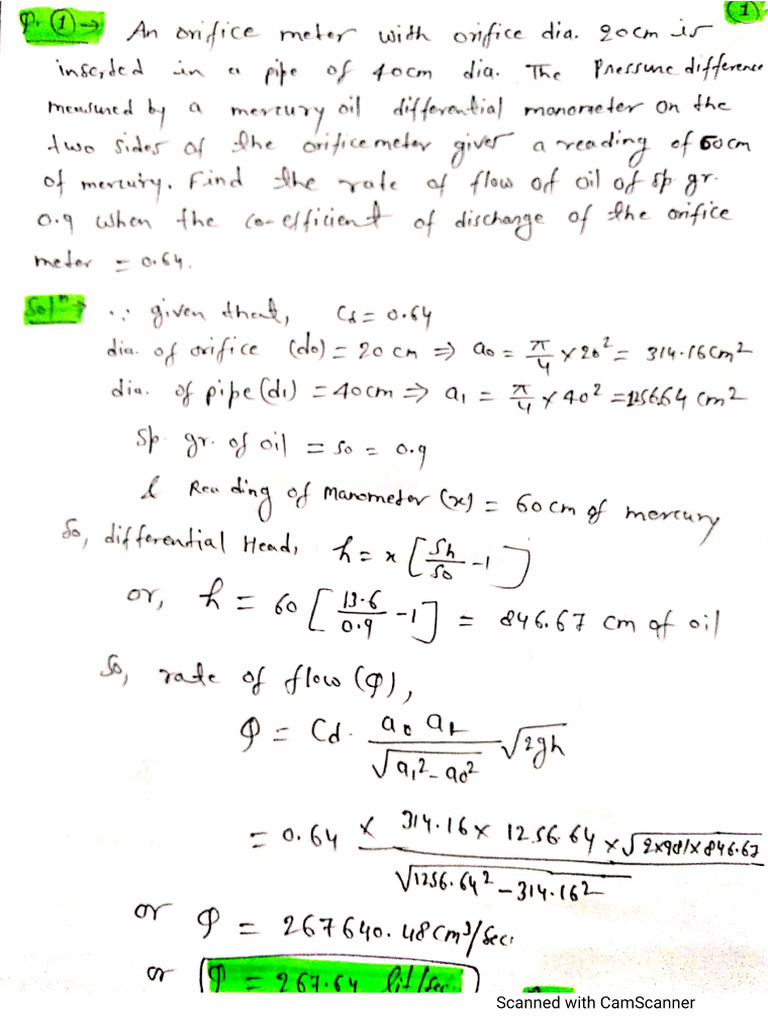 (1)
Q. (1) → An orifice meter with orifice dia. 20cm is
inserted in a pipe of 40cm dia. The Pressure difference
measured by a mercury oil differential manometer on the
two sides of the orifice meter gives a reading of 60cm
of mercury. Find the rate of flow of oil of sp gr.
0.9 when the co-efficient of discharge of the orifice
meter = 0.64.
Solⁿ → ∵ given that, Cd = 0.64
dia. of orifice (do) = 20 cm ⇒ ao = π/4 × 20² = 314.16 cm²
dia. of pipe (d1) = 40cm ⇒ a1 = π/4 × 40² = 1256.64 cm²
Sp. gr. of oil = so = 0.9
& Reading of Manometer (x) = 60cm of mercury
So, differential Head, h = x [Sh/So - 1]
or, h = 60 [13.6/0.9 - 1] = 846.67 cm of oil
So, rate of flow (Q),
Q = Cd. ao a1 / √(a1² - ao²) √2gh
= 0.64 × 314.16 × 1256.64 × √(2×981×846.67) / √(1256.64² - 314.16²)
or Q = 267640.48 cm³/sec.
or Q = 267.64 lit/sec.
Scanned with CamScanner